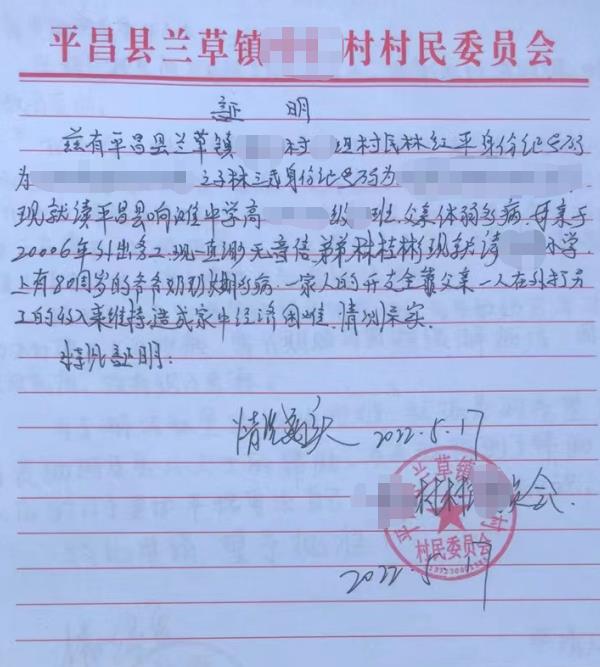 平昌县兰草镇 村村民委员会
证 明
兹有平昌县兰草镇 村 组村民林红平身份证号码
为 之子林三 身份证号码为
现就读平昌县响滩中学高 级 班.父亲体弱多病.母亲于
20006年外出务工.现一直渺无音信.弟弟林桂彬现就读 小学
上有80周岁的爷爷奶奶长期多病.一家人的开支全靠父亲一人在外打另
工的收入来维持,造成家中经济困难.情况属实.
特此证明:
情况属实 2022.5.17
村村 员会.
平 兰草镇 村
村民委员会
2022.5.17